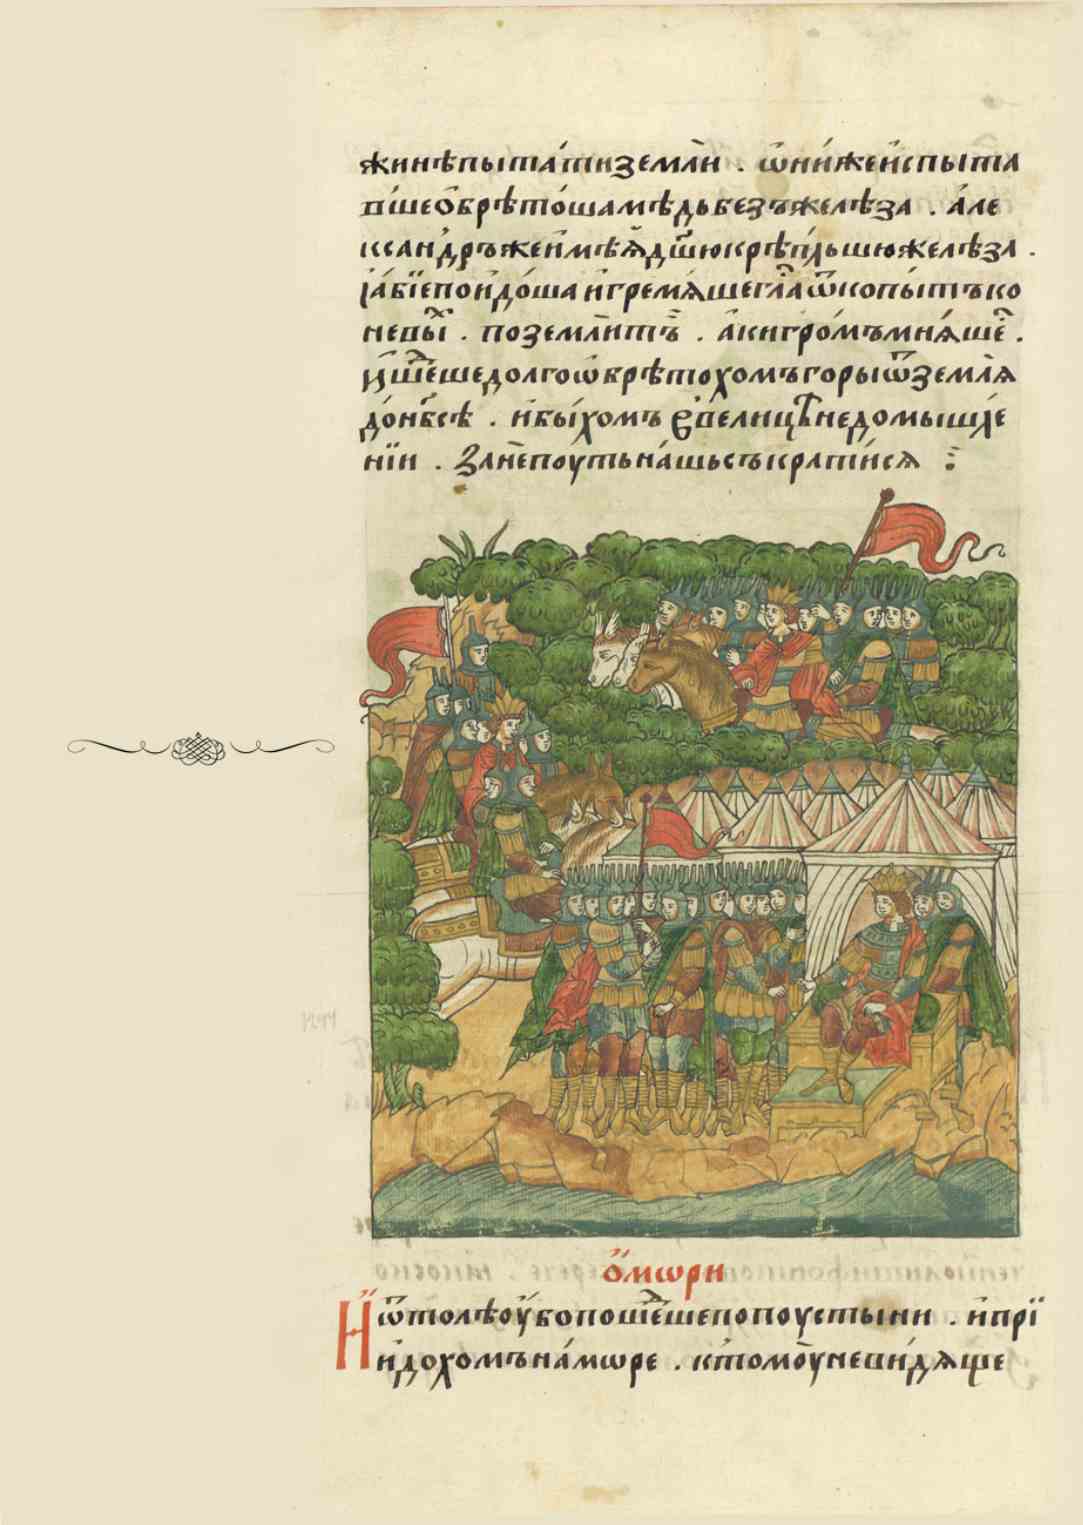 жинѣпытатиземлѧ҇и . ѡ҆ни́жеи҆спыта
вшеѡ҆брѣто́шамѣдьбезъжелѣза . а҆ле
ѯа́ндръжеи҆мѣѧ҆дшꙋ́юкрѣпльшюжелѣза .
ꙗ҆бїепои҆до́ша и҆гремѧ́шегла҇ѿкопы́тъко
невы҇ . поземлѧ҇итъ . а҆кигро́мъмнѧ́ше .
и҆ше́дшедолгоѡ҆брѣтохомъгорыѿземлѧ҇
до́нб҇сѣ . и҆бы́хомъ вვелицѣнедомышле́
нїи . зане҇поутьна́шьсъкрати́сѧ ⁝
Ѡ҆мѡри
И҆ѿтолѣоу҆бопоше́дшепопоустыни . и҆прї
идохомъна́мѡре . ктомоу҆неви́дѧще